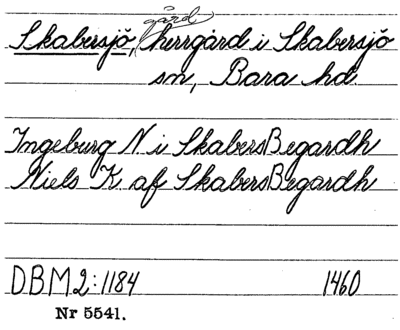 gård
Skabersjö, herrgård i Skabersjö
sn, Bara hd.
Ingeburg N. i SkabersBegardh
Niels K. af SkabersBegardh
DBM2:1184 1460
Nr 5541.